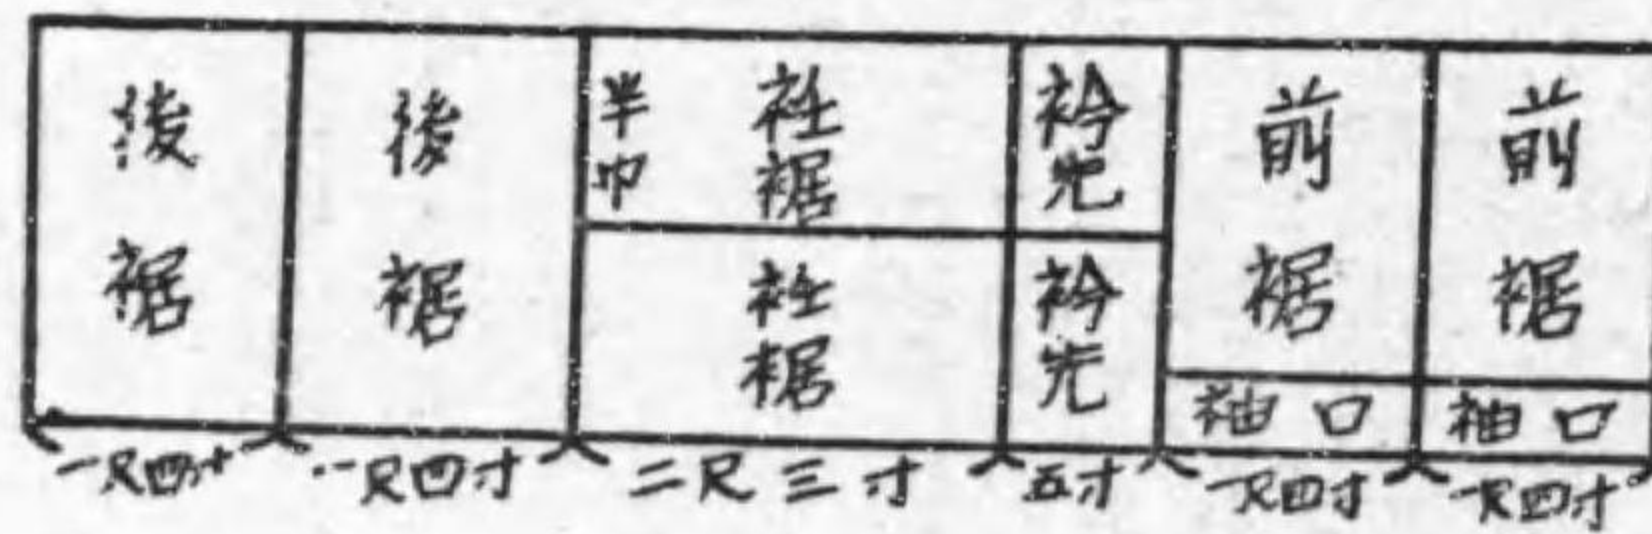 後裾
後裾
半巾
衽裾
衽裾
衿先
衿先
前裾
袖口
前裾
袖口
一尺四寸
一尺四寸
二尺三寸
五寸
一尺四寸
一尺四寸